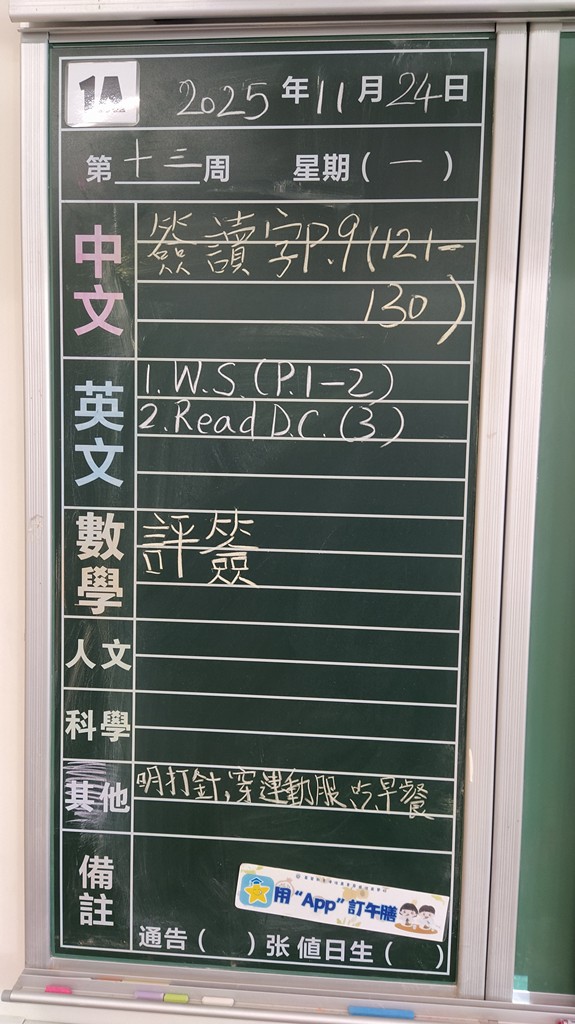 1A
2025年11月24日
第十三周 星期(一)
中文
簽讀字P.9(121-
130)
英文
1. W.S. (P.1-2)
2. Read D.C. (3)
數學
評簽
人文
科學
其他
明打針,穿運動服,吃早餐
備註
用“App”訂午膳
通告( )张 值日生( )